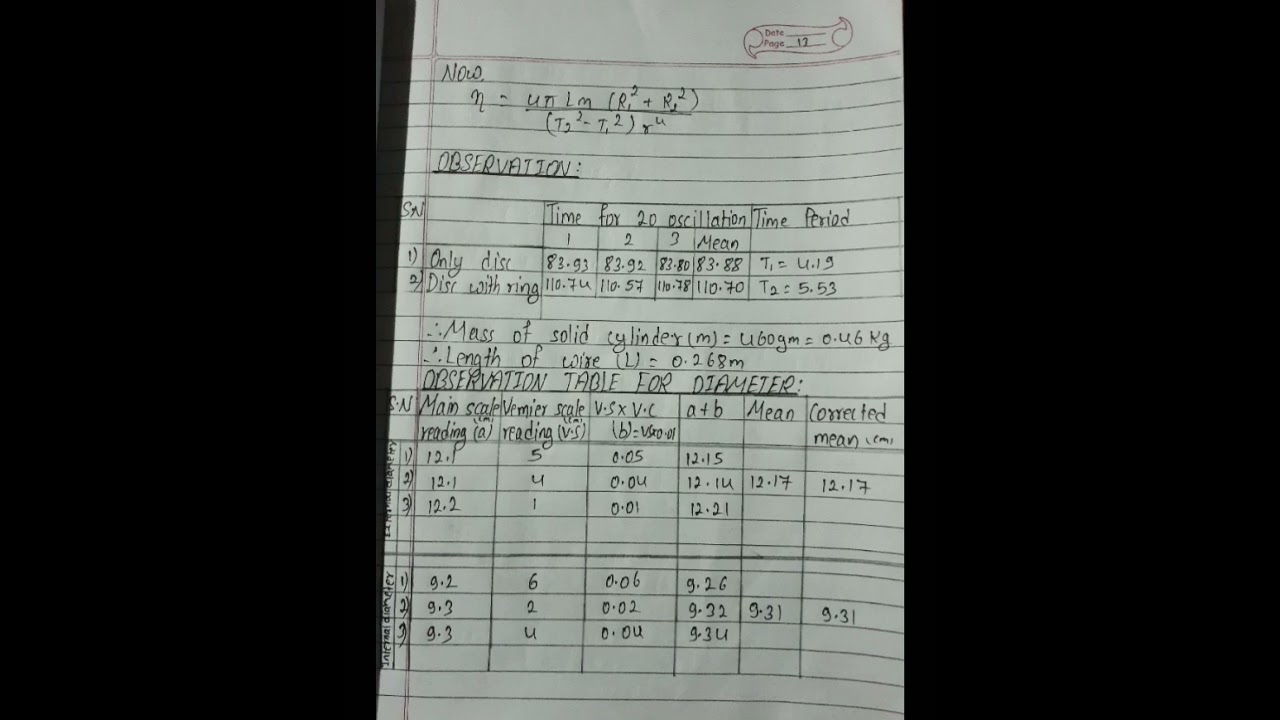 Date
Page 12
Now,
η = 4π Lm (R₁² + R₂²)
(T₂² - T₁²) r⁴
OBSERVATION:
S.N Time for 20 oscillation Time Period
1 2 3 Mean
1) Only disc 83.93 83.92 83.80 83.88 T₁ = 4.19
2) Disc with ring 110.74 110.57 110.78 110.70 T₂ = 5.53
∴ Mass of solid cylinder (m) = 460gm = 0.46 kg
∴ Length of wire (L) = 0.268m
OBSERVATION TABLE FOR DIAMETER:
S.N Main scale Vernier scale V.S x V.C a+b Mean Corrected
reading (a) (cm) reading (V.S) (cm) (b) = VSx0.01 mean (cm)
External diameter
1) 12.1 5 0.05 12.15
2) 12.1 4 0.04 12.14 12.17 12.17
3) 12.2 1 0.01 12.21
Internal diameter
1) 9.2 6 0.06 9.26
2) 9.3 2 0.02 9.32 9.31 9.31
3) 9.3 4 0.04 9.34